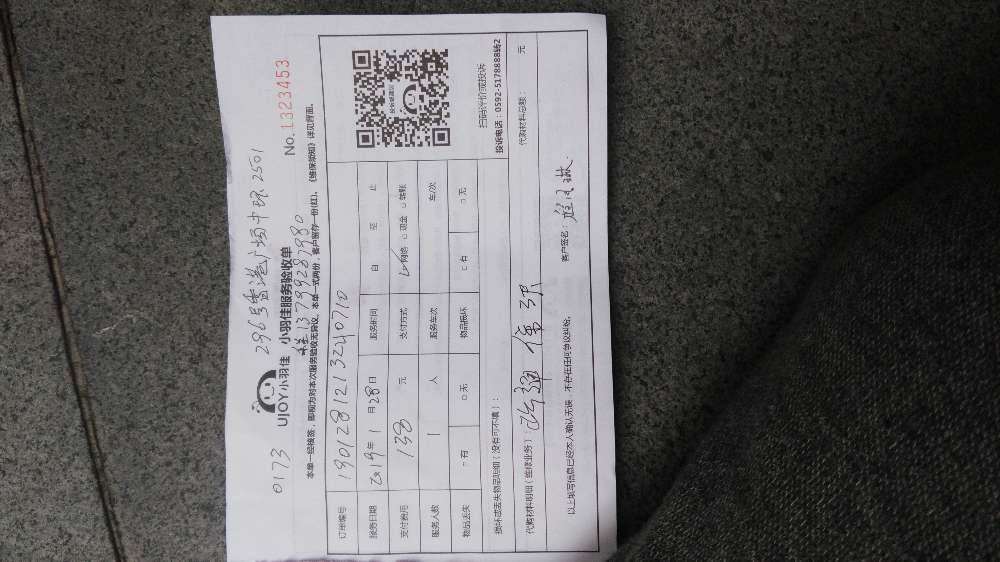 0173
296号香港广场中环2501
UJOY小羽佳 小羽佳服务验收单
No.1323453
13799287980
本单一经接签，即视为对本次服务验收无异议。本单一式两份，客户留存一份(红)。《维保须知》详见背面。
订单编号 1901281213240710
服务日期 2019年1月28日 服务时间 自 至 止
支付费用 138 元 支付方式 网络 □现金 □转账
服务人数 1 人 服务车次 车/次
物品丢失 □有 □无 物品损坏 □有 □无
扫码评价或投诉
投诉电话：0592-5178888转2
损坏或丢失物品明细（没有可不填）：
代购材料明细（维修业务）： 代购材料总额： 元
以上填写信息已经本人确认无误，不存在任何争议纠纷。
客户签名：